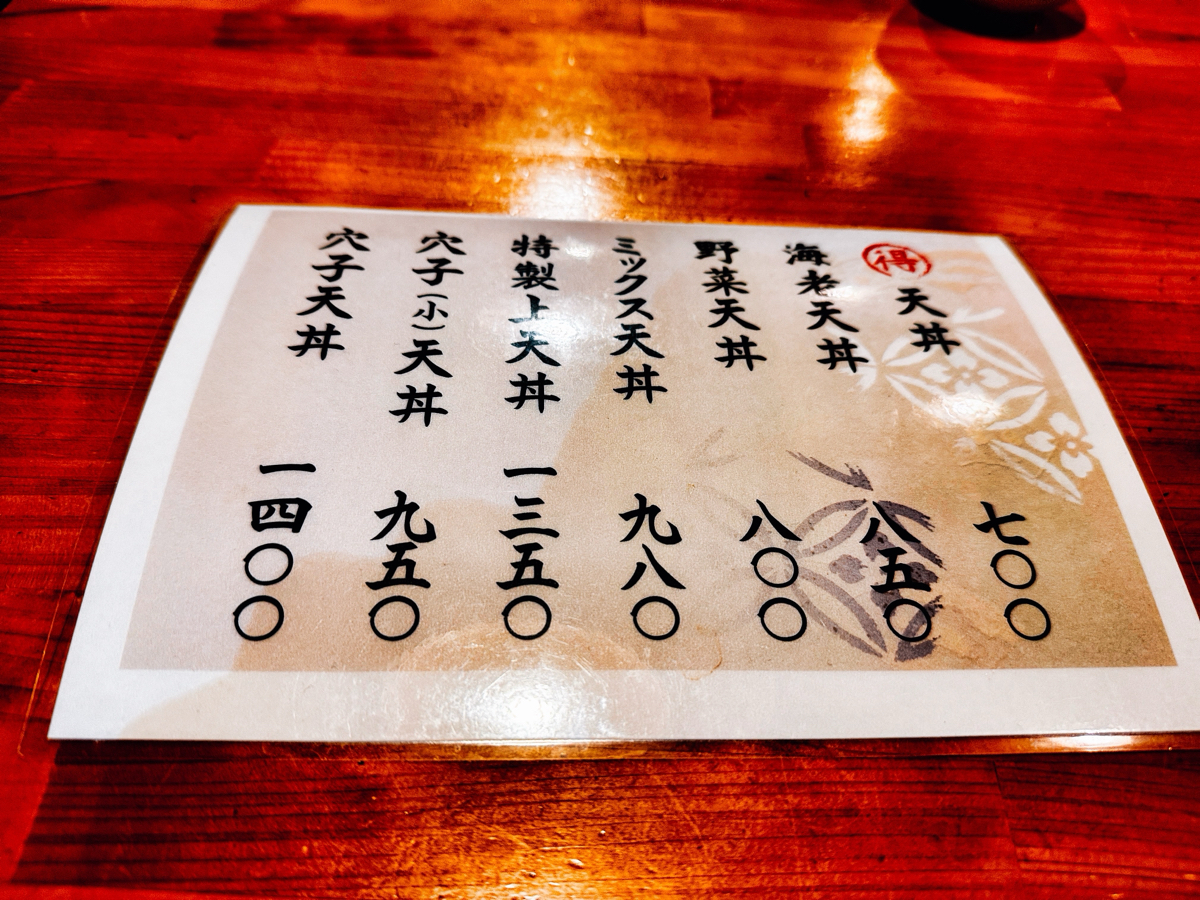 得 天丼 七〇〇
海老天丼 八五〇
野菜天丼 八〇〇
ミックス天丼 九八〇
特製上天丼 一三五〇
穴子(小)天丼 九五〇
穴子天丼 一四〇〇